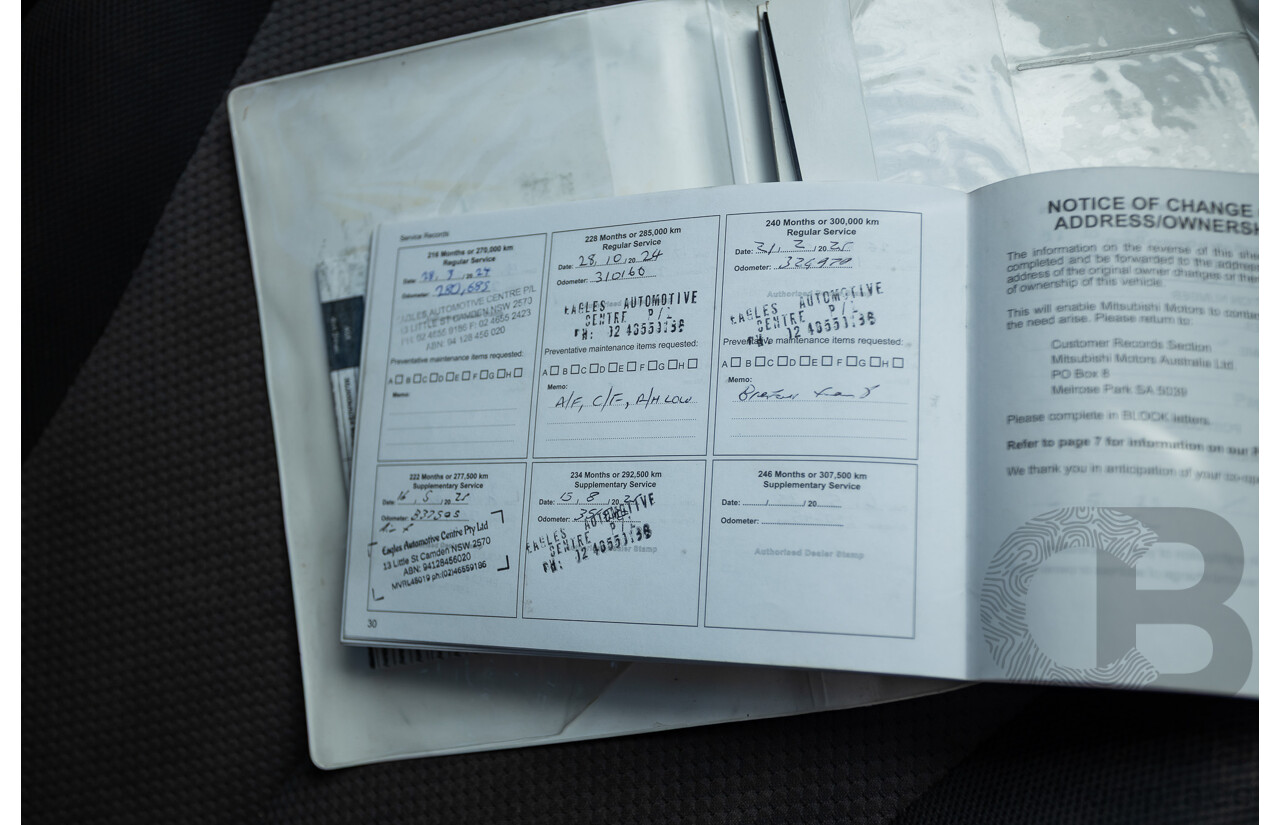 Service Records
216 Months or 270,000 km
Regular Service
Date: 28, 3 / 20 24
Odometer: 280,695
EAGLES AUTOMOTIVE CENTRE P/L
13 LITTLE ST CAMDEN NSW 2570
PH: 02 4655 9186 F: 02 4655 2423
ABN: 94 128 456 020
Preventative maintenance items requested:
A B C D E F G H
Memo:
228 Months or 285,000 km
Regular Service
Date: 28, 10, 20 24
Odometer: 310160
EAGLES AUTOMOTIVE
CENTRE P/L
PH: 02 46559186
Preventative maintenance items requested:
A B C D E F G H
Memo:
A/F, C/F, LOW
240 Months or 300,000 km
Regular Service
Date: 2 / 20 25
Odometer:
Authorised
EAGLES AUTOMOTIVE
CENTRE P/L
PH: 02 46559186
Preventative maintenance items requested:
A B C D E F G H
Memo:
222 Months or 277,500 km
Supplementary Service
Date: 5 / 20 25
Odometer: 337505
Eagles Automotive Centre Pty Ltd
13 Little St Camden NSW 2570
ABN: 94128456020
MVRL48019 ph:(02)46559186
234 Months or 292,500 km
Supplementary Service
Date: 15, 8 / 20
Odometer:
EAGLES AUTOMOTIVE
CENTRE P/L
PH: 02 46559186
Dealer Stamp
246 Months or 307,500 km
Supplementary Service
Date: / / 20
Odometer:
Authorised Dealer Stamp
30
NOTICE OF CHANGE
ADDRESS/OWNERSH
The information on the reverse of this
completed and be forwarded to the address
address of the original owner changes or
of ownership of this vehicle.
This will enable Mitsubishi Motors to contact
the need arise. Please return to:
Customer Records Section
Mitsubishi Motors Australia Ltd.
PO Box 8
Melrose Park SA 5039
Please complete in BLOCK letters.
Refer to page 7 for information on our
We thank you in anticipation of your
CB